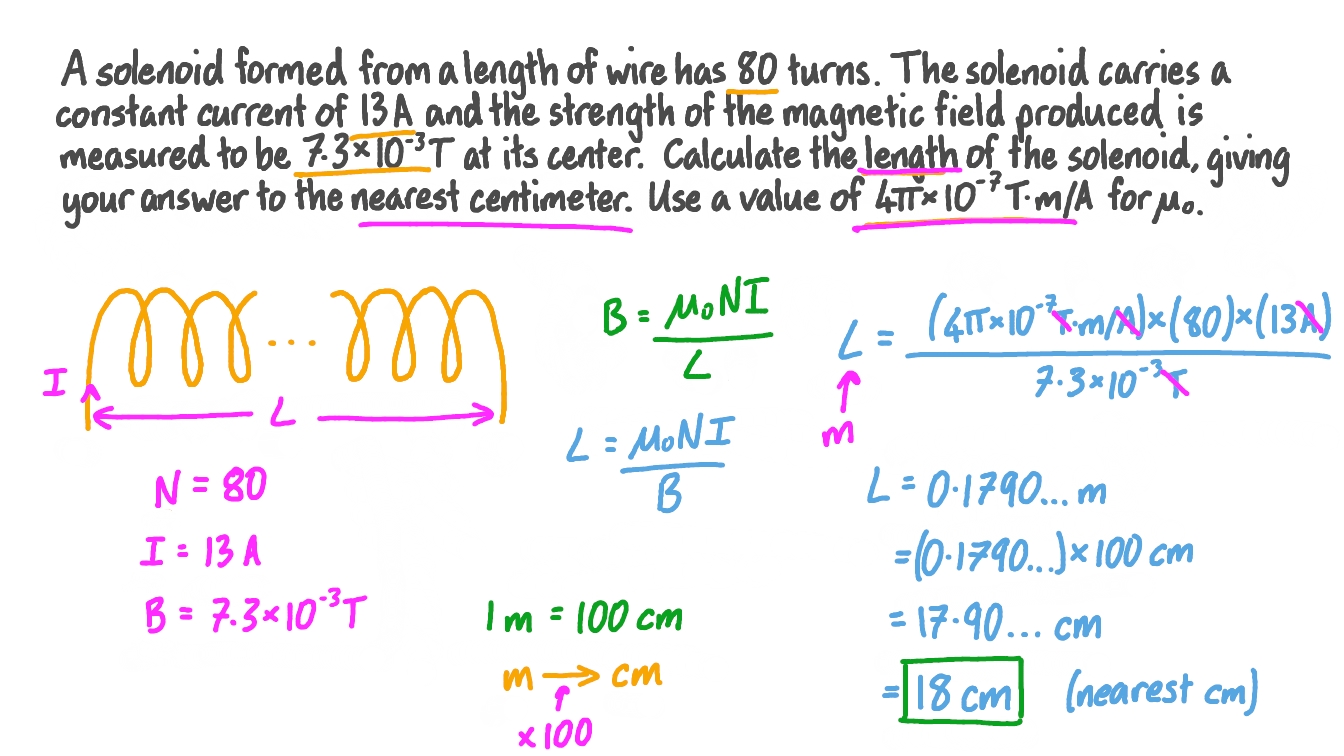 A solenoid formed from a length of wire has 80 turns. The solenoid carries a
constant current of 13 A and the strength of the magnetic field produced is
measured to be 7.3×10⁻³T at its center. Calculate the length of the solenoid, giving
your answer to the nearest centimeter. Use a value of 4π×10⁻⁷ T·m/A for μ₀.
I
...
L
N = 80
I = 13 A
B = 7.3×10⁻³T
B = μ₀NI / L
L = μ₀NI / B
1 m = 100 cm
m → cm
↑
×100
L = (4π×10⁻⁷T·m/A)×(80)×(13A) / 7.3×10⁻³T
↑
m
L = 0.1790... m
= (0.1790...)×100 cm
= 17.90... cm
= 18 cm (nearest cm)